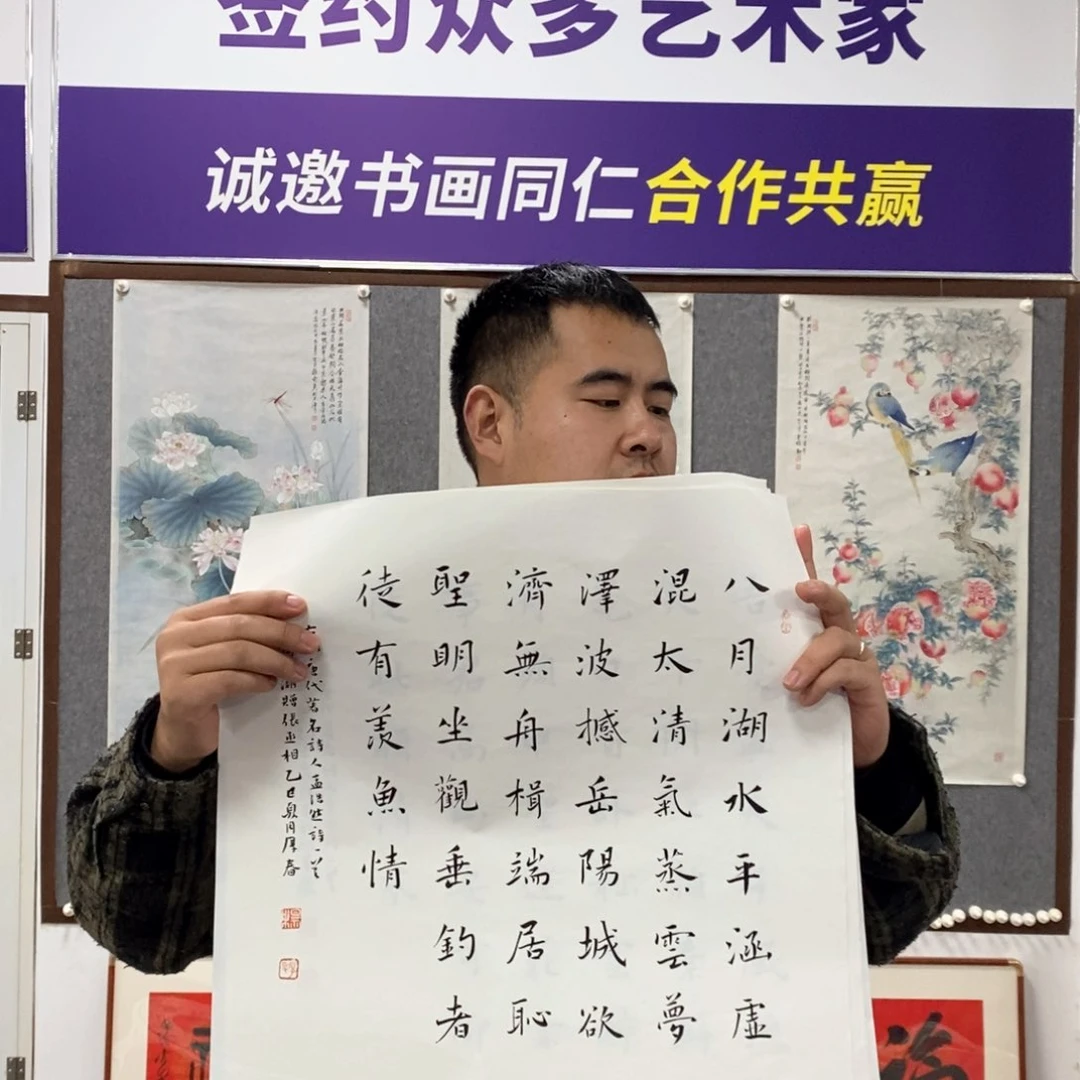 签约众多艺术家
诚邀书画同仁合作共赢
八月湖水平涵虚
混太清氣蒸雲夢
澤波撼岳陽城欲
濟無舟楫端居恥
聖明坐觀垂釣者
徒有羨魚情
唐代著名詩人孟浩然詩一首
湖贈張丞相乙巳夏月厚春